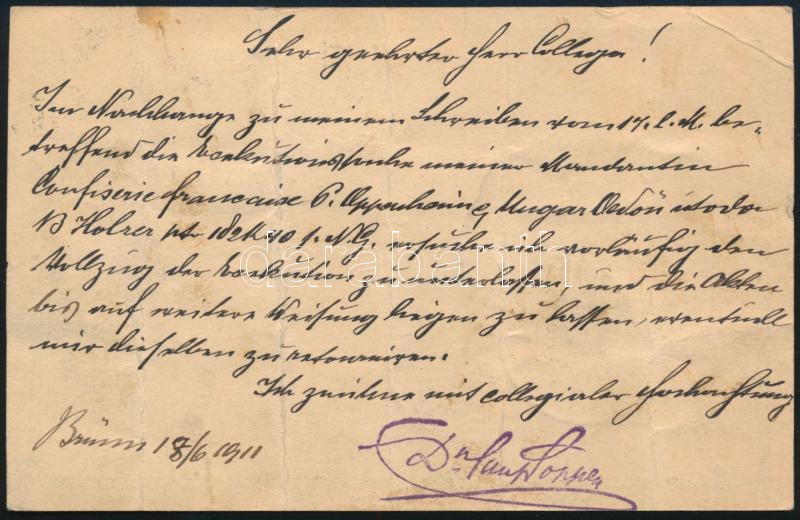 Sehr geehrter Herr College!
Im Nachhange zu meinem Schreiben vom 17. l. M. be-
treffend die Exekutionssache meiner Mandantin
Confiserie francaise P. Oppenheim & Ungar Ödön utoda
B Holzer pto 182 K 40 f. s. NG. ersuche ich vorläufig den
Vollzug der Exekution zu unterlassen, und die Akten
bis auf weitere Weisung liegen zu lassen, eventuell
mir dieselben zu retouniren.
Ich zeichne mit collegialer Hochachtung
Brünn 18/6 1911
Dr.
darabanth